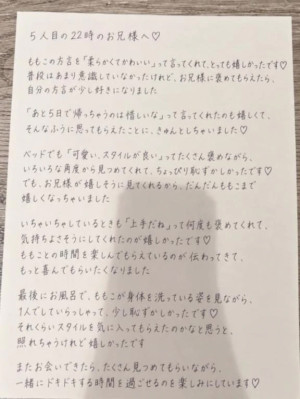 5人目の22時のお兄様へ♡
ももこの方言を「柔らかくてかわいい」って言ってくれて、とっても嬉しかったです♡
普段はあまり意識していなかったけれど、お兄様に褒めてもらえたら、
自分の方言が少し好きになりました
「あと5日で帰っちゃうのは惜しいな」って言ってくれたのも嬉しくて、
そんなふうに思ってもらえたことに、きゅんとしちゃいました♡
ベッドでも「可愛い、スタイルが良い」ってたくさん褒めながら、
いろいろな角度から見つめてくれて、ちょっぴり恥ずかしかったです♡
でも、お兄様が嬉しそうに見てくれるから、だんだんももこまで
嬉しくなっちゃいました
いちゃいちゃしているときも「上手だね」って何度も褒めてくれて、
気持ちよさそうにしてくれたのが嬉しかったです♡
ももことの時間を楽しんでもらえているのが伝わってきて、
もっと喜んでもらいたくなりました
最後にお風呂で、ももこが身体を洗っている姿を見ながら、
1人でしていらっしゃって、少し恥ずかしかったです♡
それくらいスタイルを気に入ってもらえたのかなと思うと、
照れちゃうけれど嬉しかったです
またお会いできたら、たくさん見つめてもらいながら、
一緒にドキドキする時間を過ごせるのを楽しみにしています♡